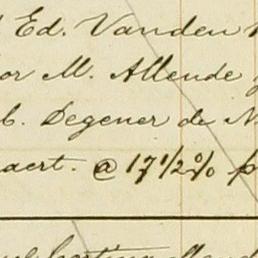 Ed. Vanden
or M. Allende
b. Degener de N
aert. @ 17 1/2 % p